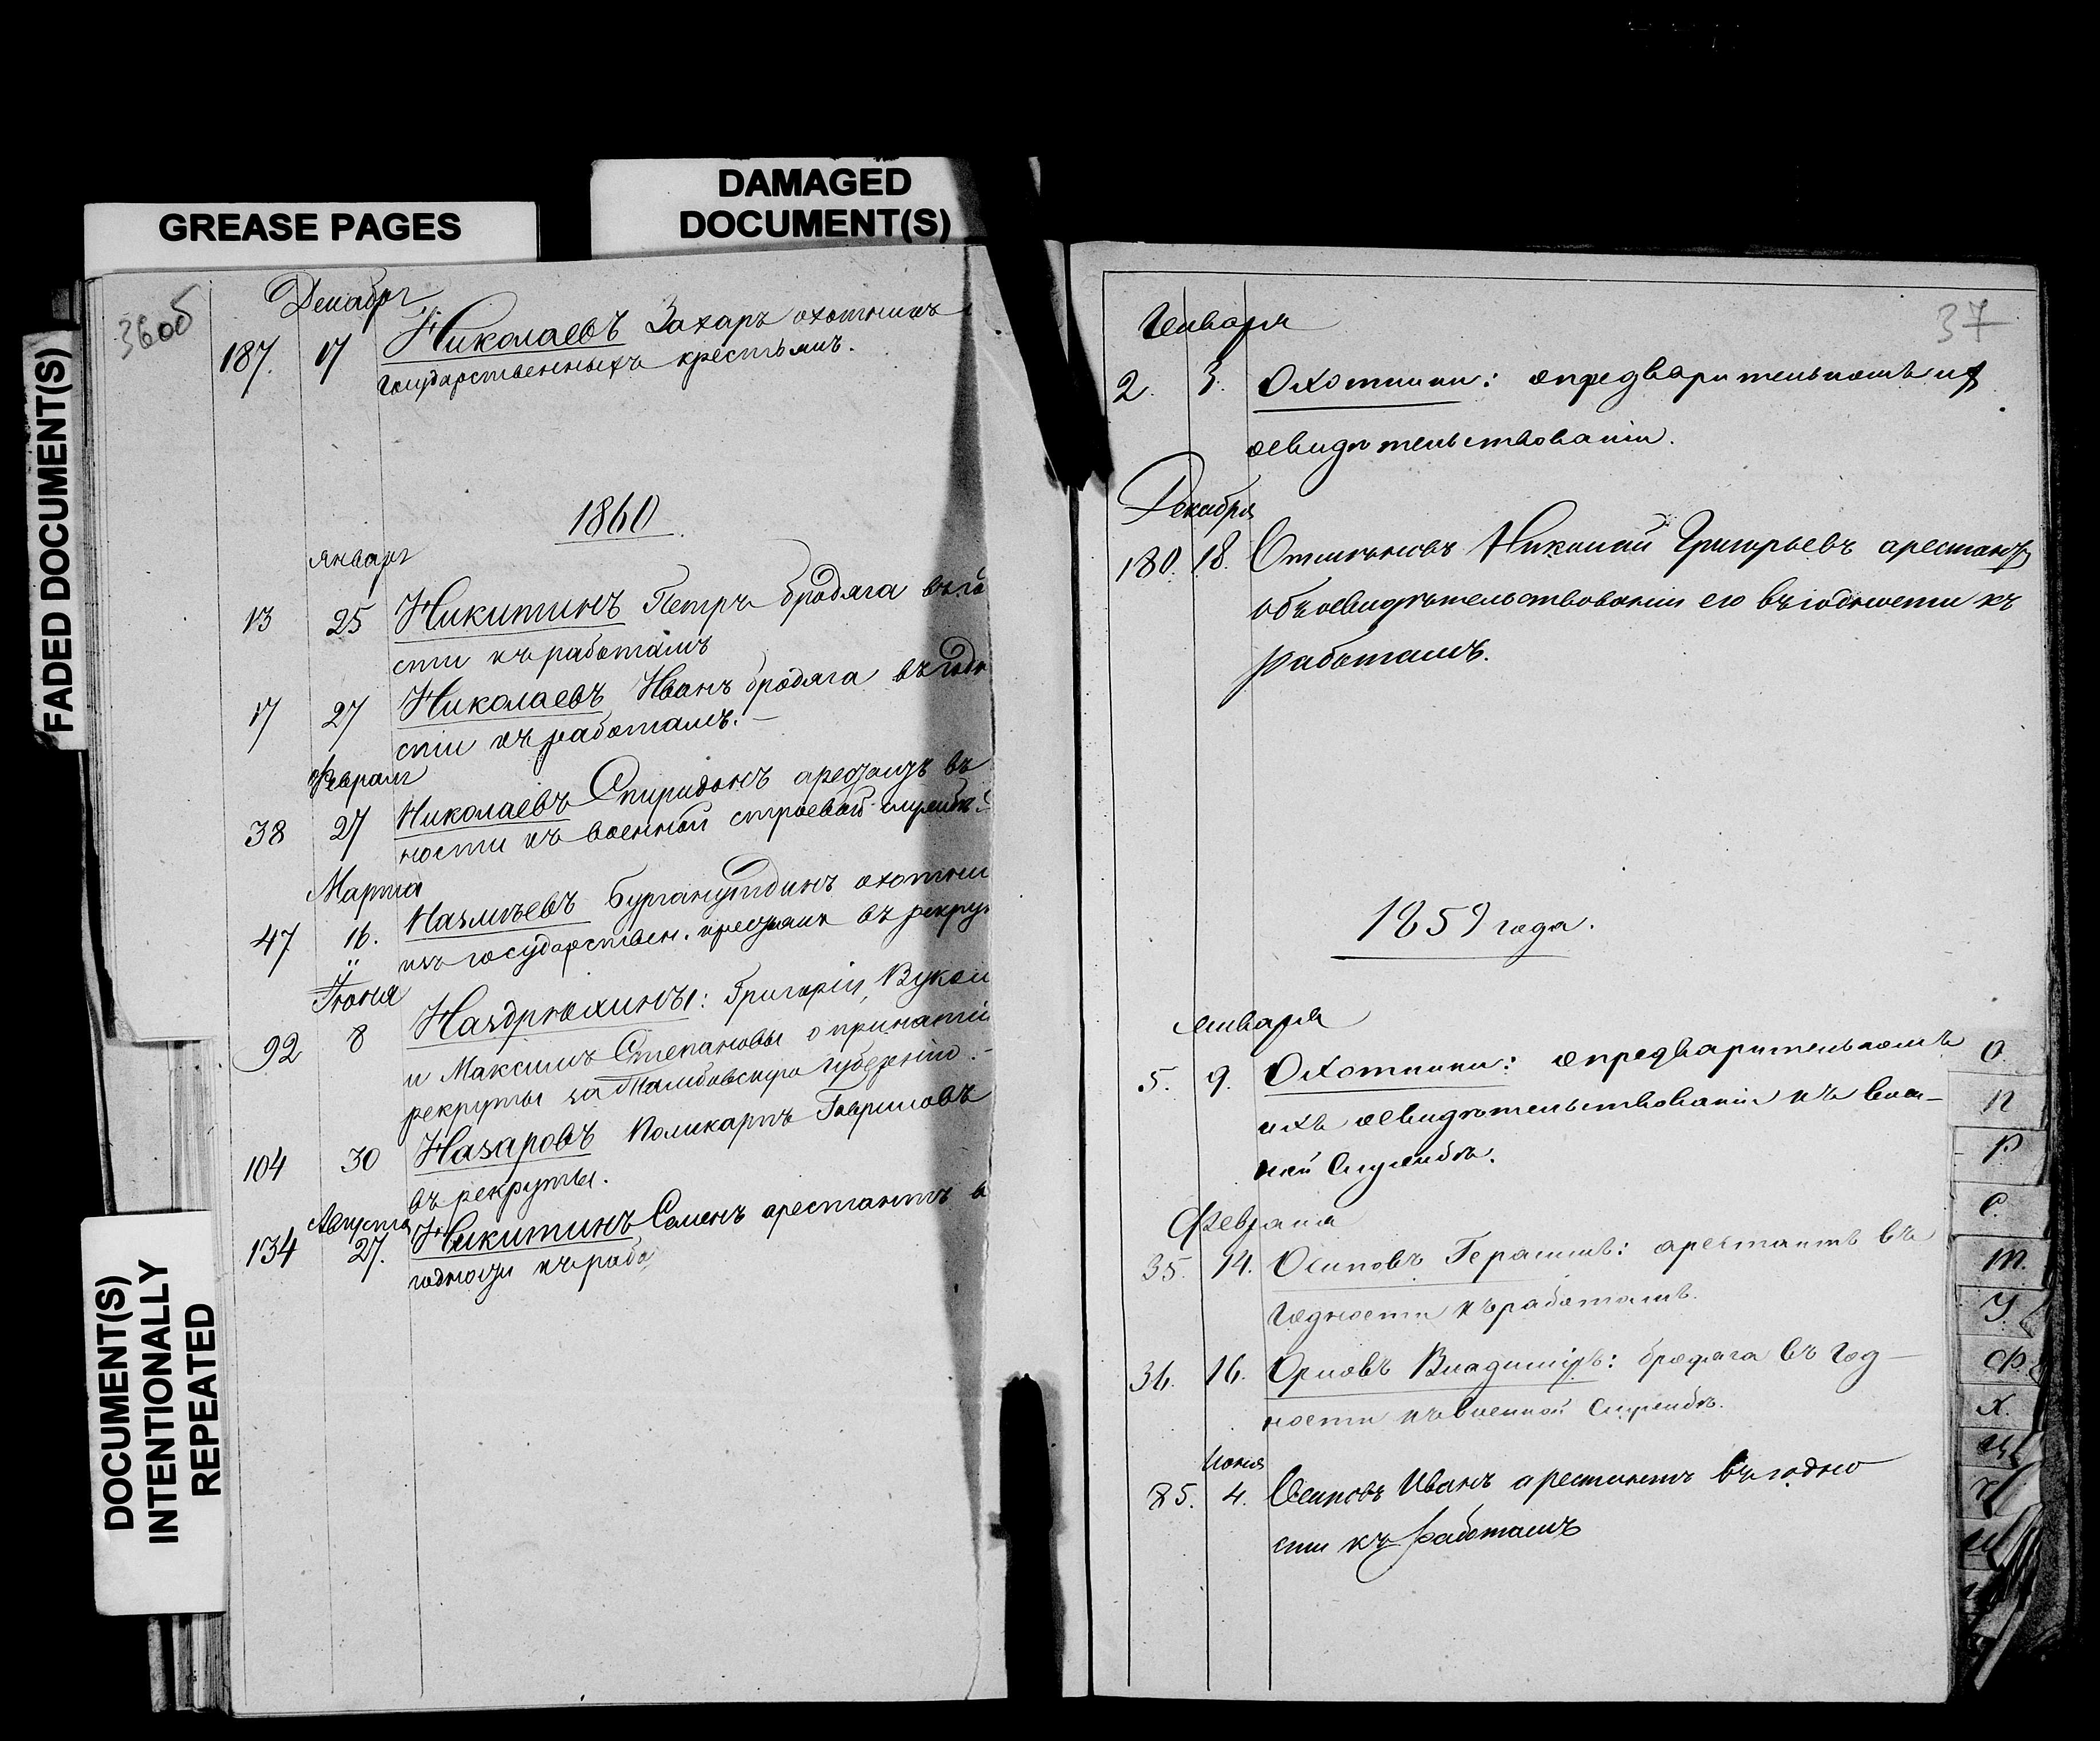 GREASE PAGES
DAMAGED
DOCUMENT(S)
FADED DOCUMENT(S)
DOCUMENT(S)
INTENTIONALLY
REPEATED
36об
Декабря
187. 17 Николаевъ Захаръ охотникъ
государственныхъ крестьянъ.
1860
январь
13 25 Никитинъ Петръ бродяга въ го
сти къ работамъ
17 27 Николаевъ Иванъ бродяга въ годн
сти къ работамъ. —
Февраля
38 27 Николаевъ Спиридонъ въ
ности къ военной строевой службе
Марта
47 16. Бурганутдинъ охотни
изъ государствен. въ рекру
Іюня
92 8 Наздрюхины: Григорій, Вукол
и Максимъ Степановы о принятіи
рекруты за Тамбовскую губернію. —
104 30 Назаровъ Поликарпъ Гавриловъ
въ рекруты.
Августа
134 27. Никитинъ Семенъ арестантъ в
годности къ рабо
37
Генваря
2. 3. Охотники: опредварительномъ их
освидѣтельствованіи.
Декабря
180. 18. Николай Григорьевъ арестантъ
объ освидѣтельствованіи его въ годности къ
работамъ.
1859 года.
января
5. 9. Охотники: опредварительномъ
ихъ освидѣтельствованіи къ воен-
ной службѣ.
Февраля
35. 14. Осиповъ Герасимъ: арестантъ въ
годности къ работамъ.
36. 16. Орловъ Владиміръ: бродяга въ год—
ности къ военной службѣ.
Іюня
85. 4. Осиповъ Иванъ арестантъ въ годно
сти къ работамъ
О.
П
Р
С.
Т.
У.
Ф.
Х.
Ц
Ч